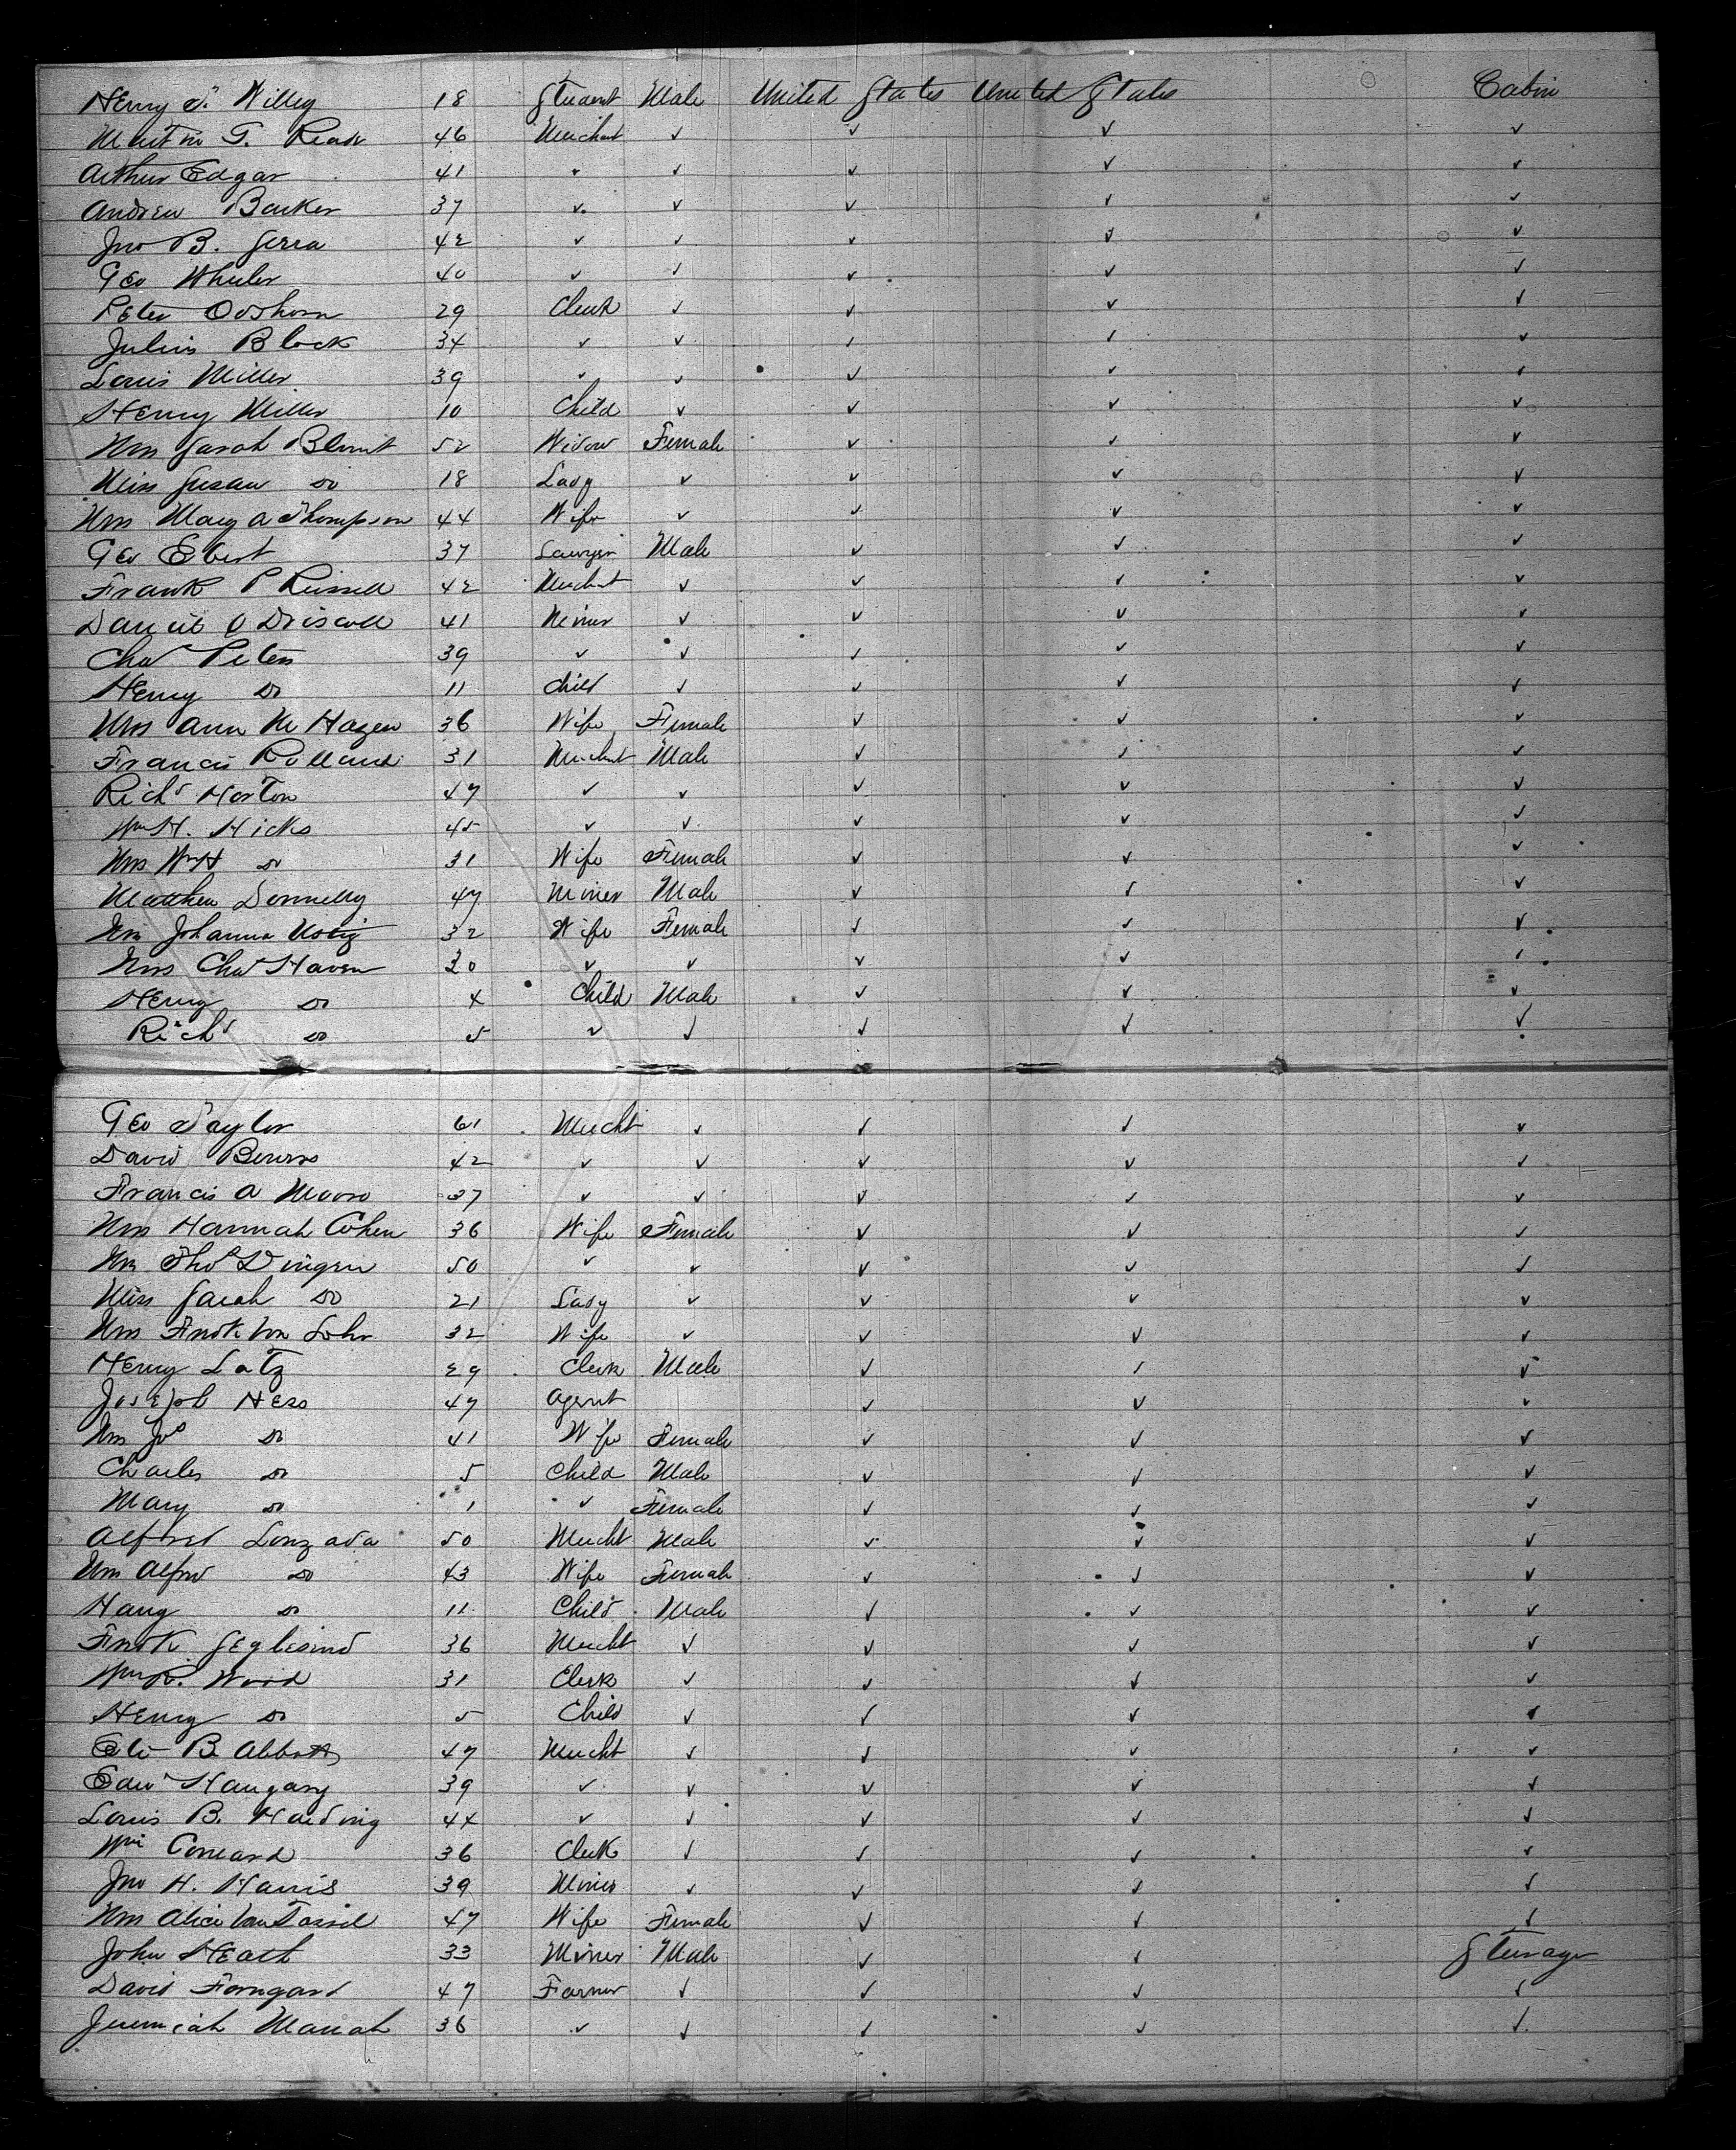 Henry S. Willey 18 Student Male United States United States Cabin
Martin G. Read 46 Merchant ✓ ✓ ✓ ✓
Arthur Edgar 41 ✓ ✓ ✓ ✓ ✓
Andrew Barker 37 ✓ ✓ ✓ ✓ ✓
Jno B. Serra 42 ✓ ✓ ✓ ✓ ✓
Geo Wheeler 40 ✓ ✓ ✓ ✓ ✓
Peter Osthorn 29 Clerk ✓ ✓ ✓ ✓
Julius Block 34 ✓ ✓ ✓ ✓ ✓
Louis Miller 39 ✓ ✓ ✓ ✓ ✓
Henry Miller 10 Child ✓ ✓ ✓ ✓
Mrs Sarah Blunt 52 Widow Female ✓ ✓ ✓
Miss Susan do 18 Lady ✓ ✓ ✓ ✓
Mrs Mary A Thompson 44 Wife ✓ ✓ ✓ ✓
Geo Ebert 37 Lawyer Male ✓ ✓ ✓
Frank P Russell 42 Merchnt ✓ ✓ ✓ ✓
Daniel O Driscoll 41 Miner ✓ ✓ ✓ ✓
Chas Peters 39 ✓ ✓ ✓ ✓ ✓
Henry do 11 Child ✓ ✓ ✓ ✓
Mrs Ann M Hazen 36 Wife Female ✓ ✓ ✓
Francis Rolland 31 Merchant Male ✓ ✓ ✓
Richd Horton 47 ✓ ✓ ✓ ✓ ✓
Wm H. Hicks 45 ✓ ✓ ✓ ✓ ✓
Mrs Wm H do 31 Wife Female ✓ ✓ ✓
Matthew Donnelly 47 Miner Male ✓ ✓ ✓
Mrs Johanna 32 Wife Female ✓ ✓ ✓
Mrs Chas Haven 30 ✓ ✓ ✓ ✓ ✓
Henry do 4 Child Male ✓ ✓ ✓
Richd do 5 ✓ ✓ ✓ ✓ ✓
Geo Taylor 61 Mercht ✓ ✓ ✓ ✓
David 42 ✓ ✓ ✓ ✓ ✓
Francis A Moore 37 ✓ ✓ ✓ ✓ ✓
Mrs Hannah Cohen 36 Wife Female ✓ ✓ ✓
Mrs Thos Dingen 50 ✓ ✓ ✓ ✓ ✓
Miss Sarah do 21 Lady ✓ ✓ ✓ ✓
Mrs Fredk Von Lohr 32 Wife ✓ ✓ ✓ ✓
Henry Latz 29 Clerk Male ✓ ✓ ✓
Joseph Hess 47 Agent ✓ ✓ ✓
Mrs Jos do 41 Wife Female ✓ ✓ ✓
Charles do 5 Child Male ✓ ✓ ✓
Mary do 1 ✓ Female ✓ ✓ ✓
Alfred Lonzada 50 Mercht Male ✓ ✓ ✓
Mrs Alfred do 43 Wife Female ✓ ✓ ✓
Harry do 11 Child Male ✓ ✓ ✓
Fredk Seglesind 36 Mercht ✓ ✓ ✓ ✓
Wm R. Wood 31 Clerk ✓ ✓ ✓ ✓
Henry do 5 Child ✓ ✓ ✓ ✓
B. Abbott 47 Mercht ✓ ✓ ✓ ✓
Edwd Hangary 39 ✓ ✓ ✓ ✓ ✓
Louis B. Harding 44 ✓ ✓ ✓ ✓ ✓
Wm Conrard 36 Clerk ✓ ✓ ✓ ✓
Jno H. Harris 39 Miner ✓ ✓ ✓ ✓
Mrs Alice VanTassel 47 Wife Female ✓ ✓ ✓
John Heath 33 Miner Male ✓ ✓ Steerage
David Forngard 47 Farmer ✓ ✓ ✓ ✓
Jeremiah Manah 36 ✓ ✓ ✓ ✓ ✓